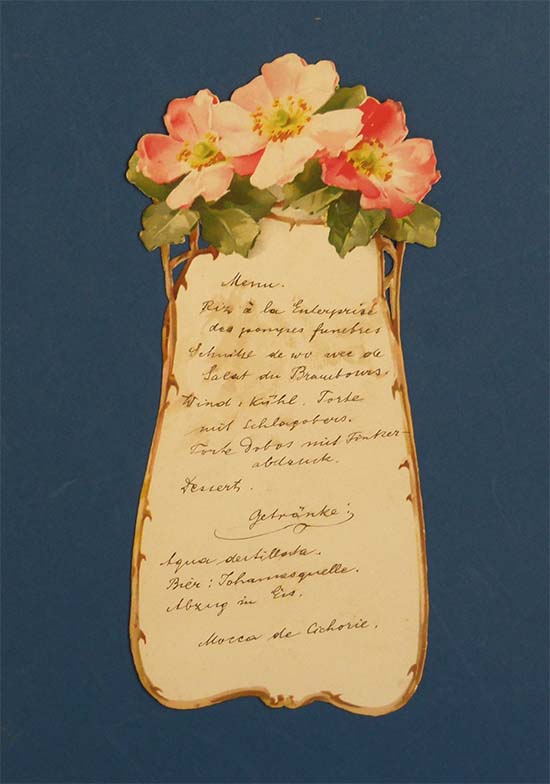 Menu.
Riz à la Enterprise
des pompes funebres
Schnitze de wo wec de
Salat du Brambours.
Wind: Kühl. Torte
mit Schlagobers.
Torte Dobos mit Finker-
abdruck.
Dessert.
Getränke:
Aqua destillata.
Bier: Johannesquelle.
Abzug in Eis.
Mocca de Cichorie.